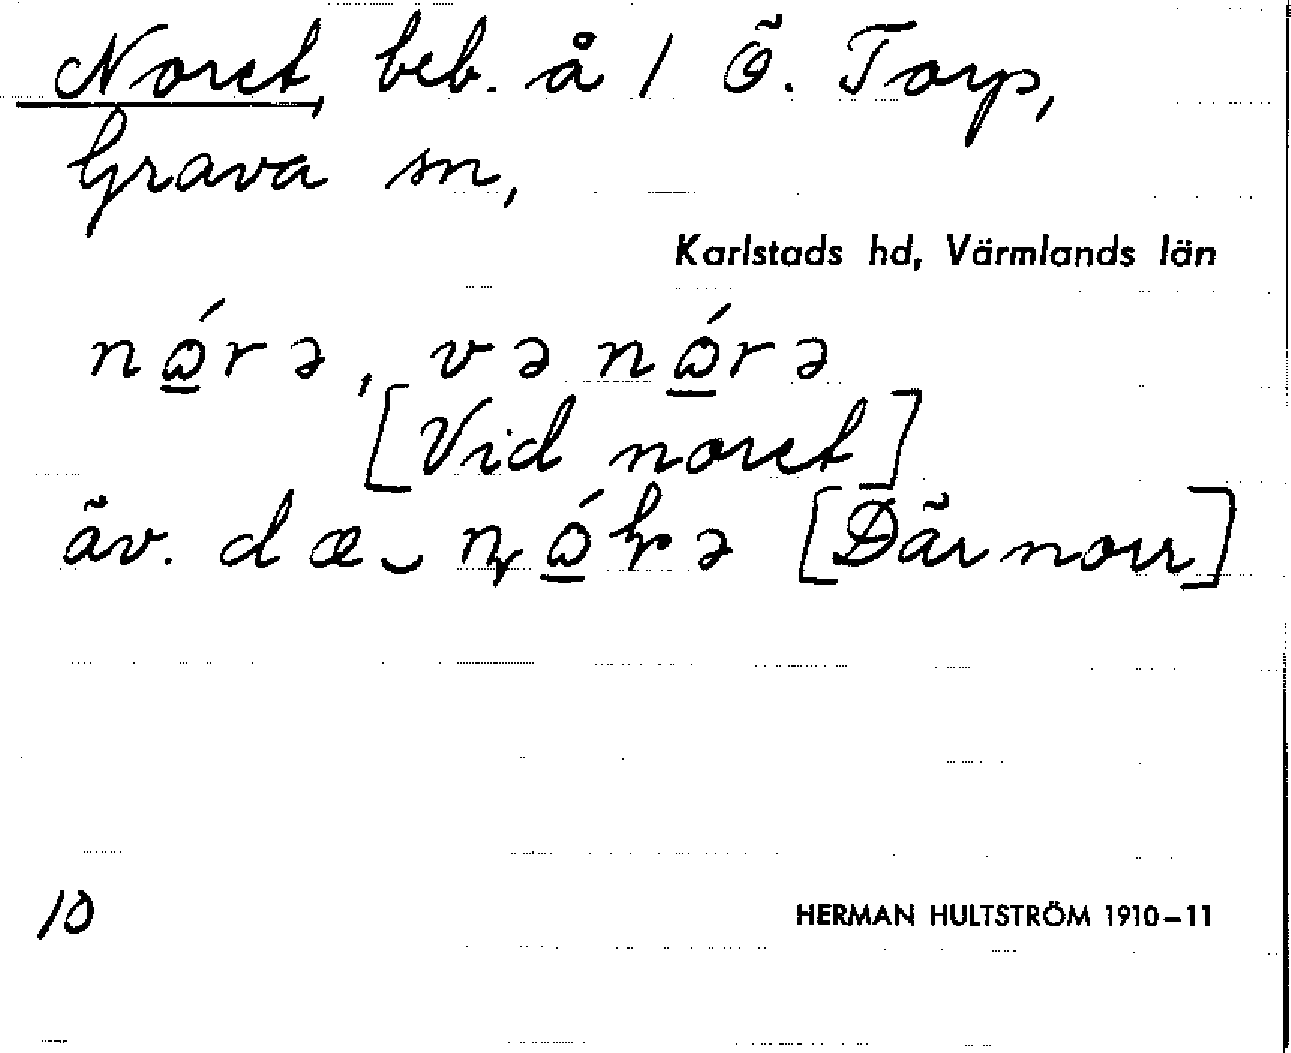 Noret, beb. å 1 Ö. Torp,
Grava sn,
Karlstads hd, Värmlands län
nώ̲rə, və nώ̲rə
[Vid noret]
äv. dæ‿
[Där norr]
10
HERMAN HULTSTRÖM 1910–11